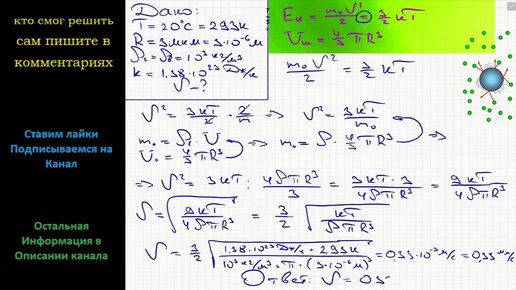 кто смог решить
сам пишите в
комментариях
Ставим лайки
Подписываемся на
Канал
Остальная
Информация в
Описании канала
Дано:
T = 20°C = 293K
R = 3мкм = 3·10⁻⁶м
= 10³ кг/м³
k = 1,38·10²³ Дж/К
υ - ?
Eк = m₀υ²/2 = 3/2 kT
= 4/3 πR³
m₀υ²/2 = 3/2 kT
υ² = 3kT/2 · 2/m => υ² = 3kT/m₀
m₀ = ρ · U => m₀ = ρ · 4/3 πR³ =>
U₀ = 4/3 πR³
=> υ² = 3kT : 4ρπR³/3 = 3kT · 3/4ρπR³ = 9kT/4ρπR³
υ = √9kT/4ρπR³ = 3/2 √kT/ρπR³
υ = 3/2 √1,38·10²³ Дж/К · 293K/10³ кг/м³ · π · (3·10⁻⁶м)³ = 0,33·10⁻³ м/с = 0,33 мм/с
Ответ: υ = 0,3